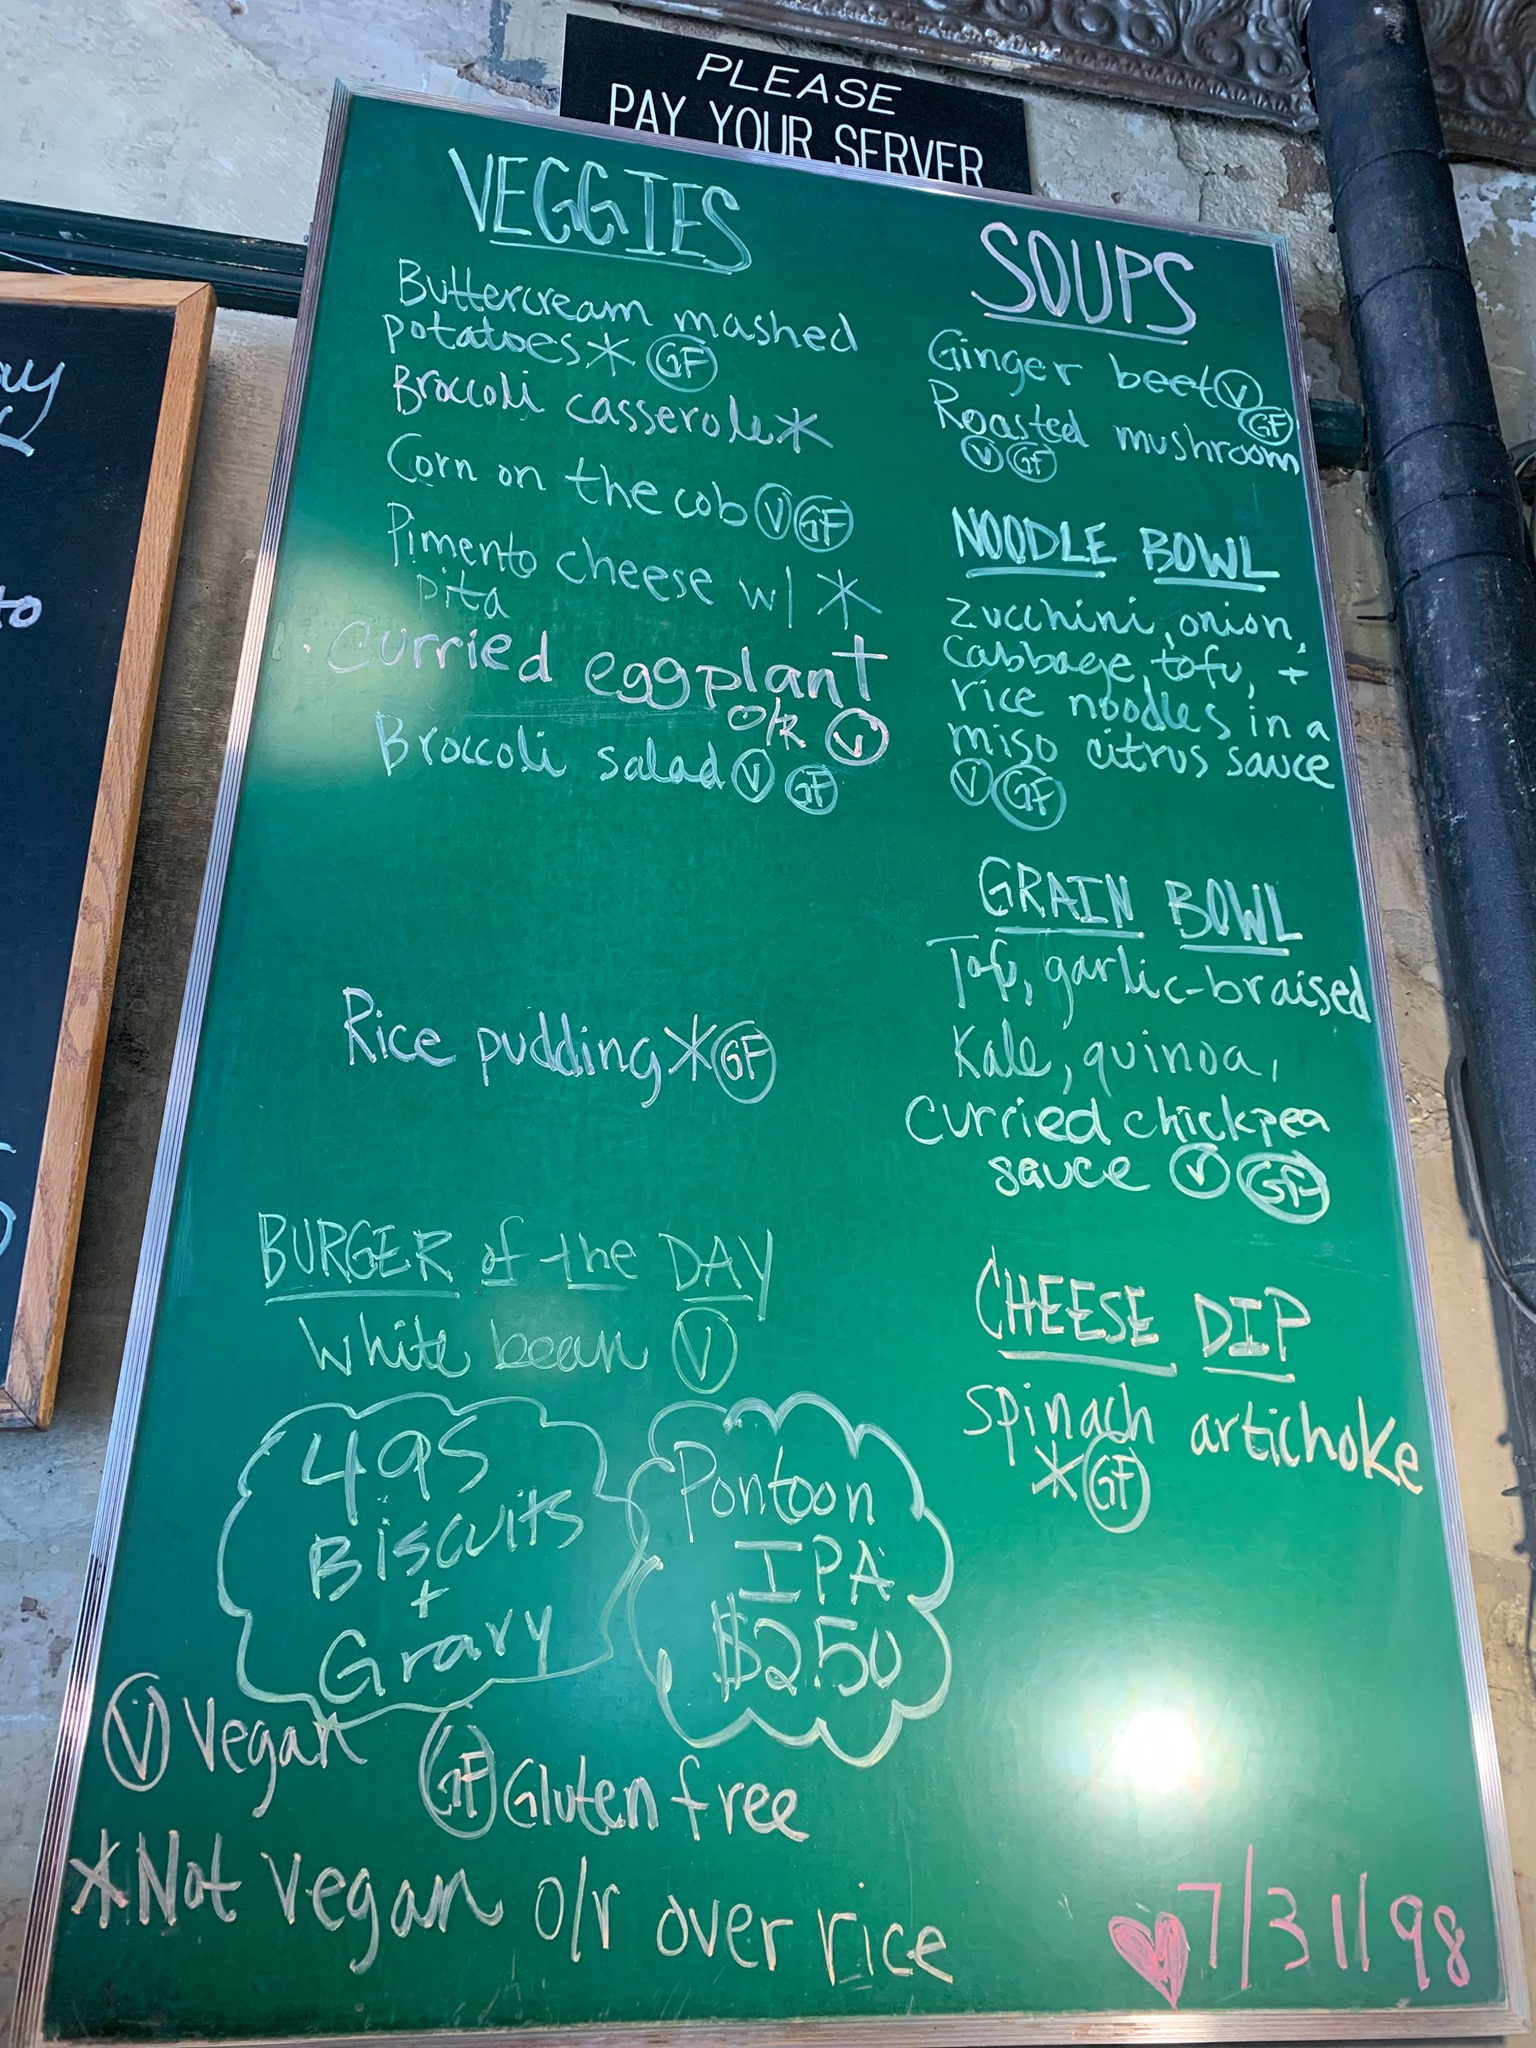 PLEASE
PAY YOUR SERVER
VEGGIES
Buttercream mashed
potatoes * GF
Broccoli casserole *
Corn on the cob V GF
Pimento cheese w/ *
pita
Curried eggplant
o/r V
Broccoli salad V GF
Rice pudding * GF
BURGER of the DAY
White bean V
495
Biscuits
+
Gravy
Pontoon
IPA
$2.50
V Vegan GF Gluten free
* Not vegan o/r over rice
SOUPS
Ginger beet V GF
Roasted mushroom
V GF
NOODLE BOWL
Zucchini, onion,
Cabbage, tofu, +
rice noodles in a
miso citrus sauce
V GF
GRAIN BOWL
Tofu, garlic-braised
Kale, quinoa,
Curried chickpea
sauce V GF
CHEESE DIP
Spinach artichoke
* GF
7/31/98
to